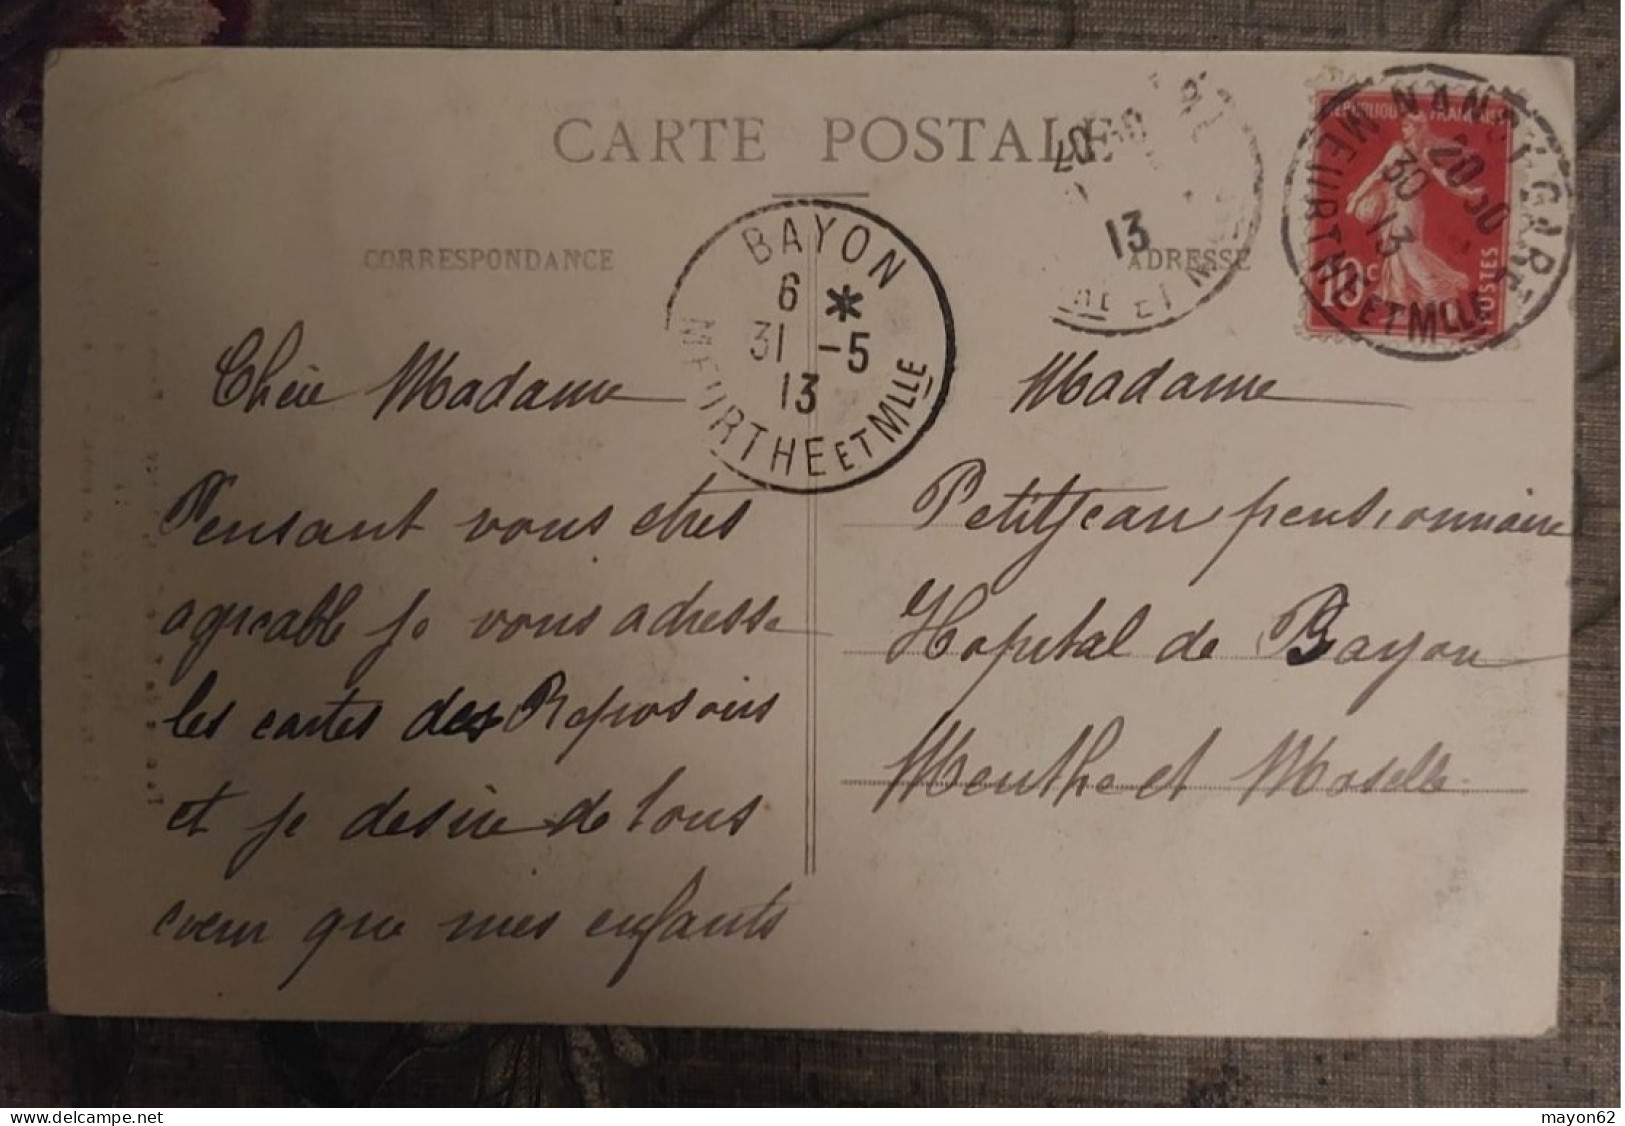 CARTE POSTALE
CORRESPONDANCE
ADRESSE
BAYON
6 *
31 -5
13
MEURTHE ET MLLE
20
13
ET M
NANCY GARE
20 30
30
13
MEURTHE ET MLLE
REPUBLIQUE FRANÇAISE
10c
POSTES
Chère Madame
Pensant vous etres
agreable je vous adresse
les cartes des Reposoirs
et je desire de tous
coeur que mes enfants
Madame
Petitjean pensionnaire
Hopital de Bayon
Meurthe et Moselle
mayon62